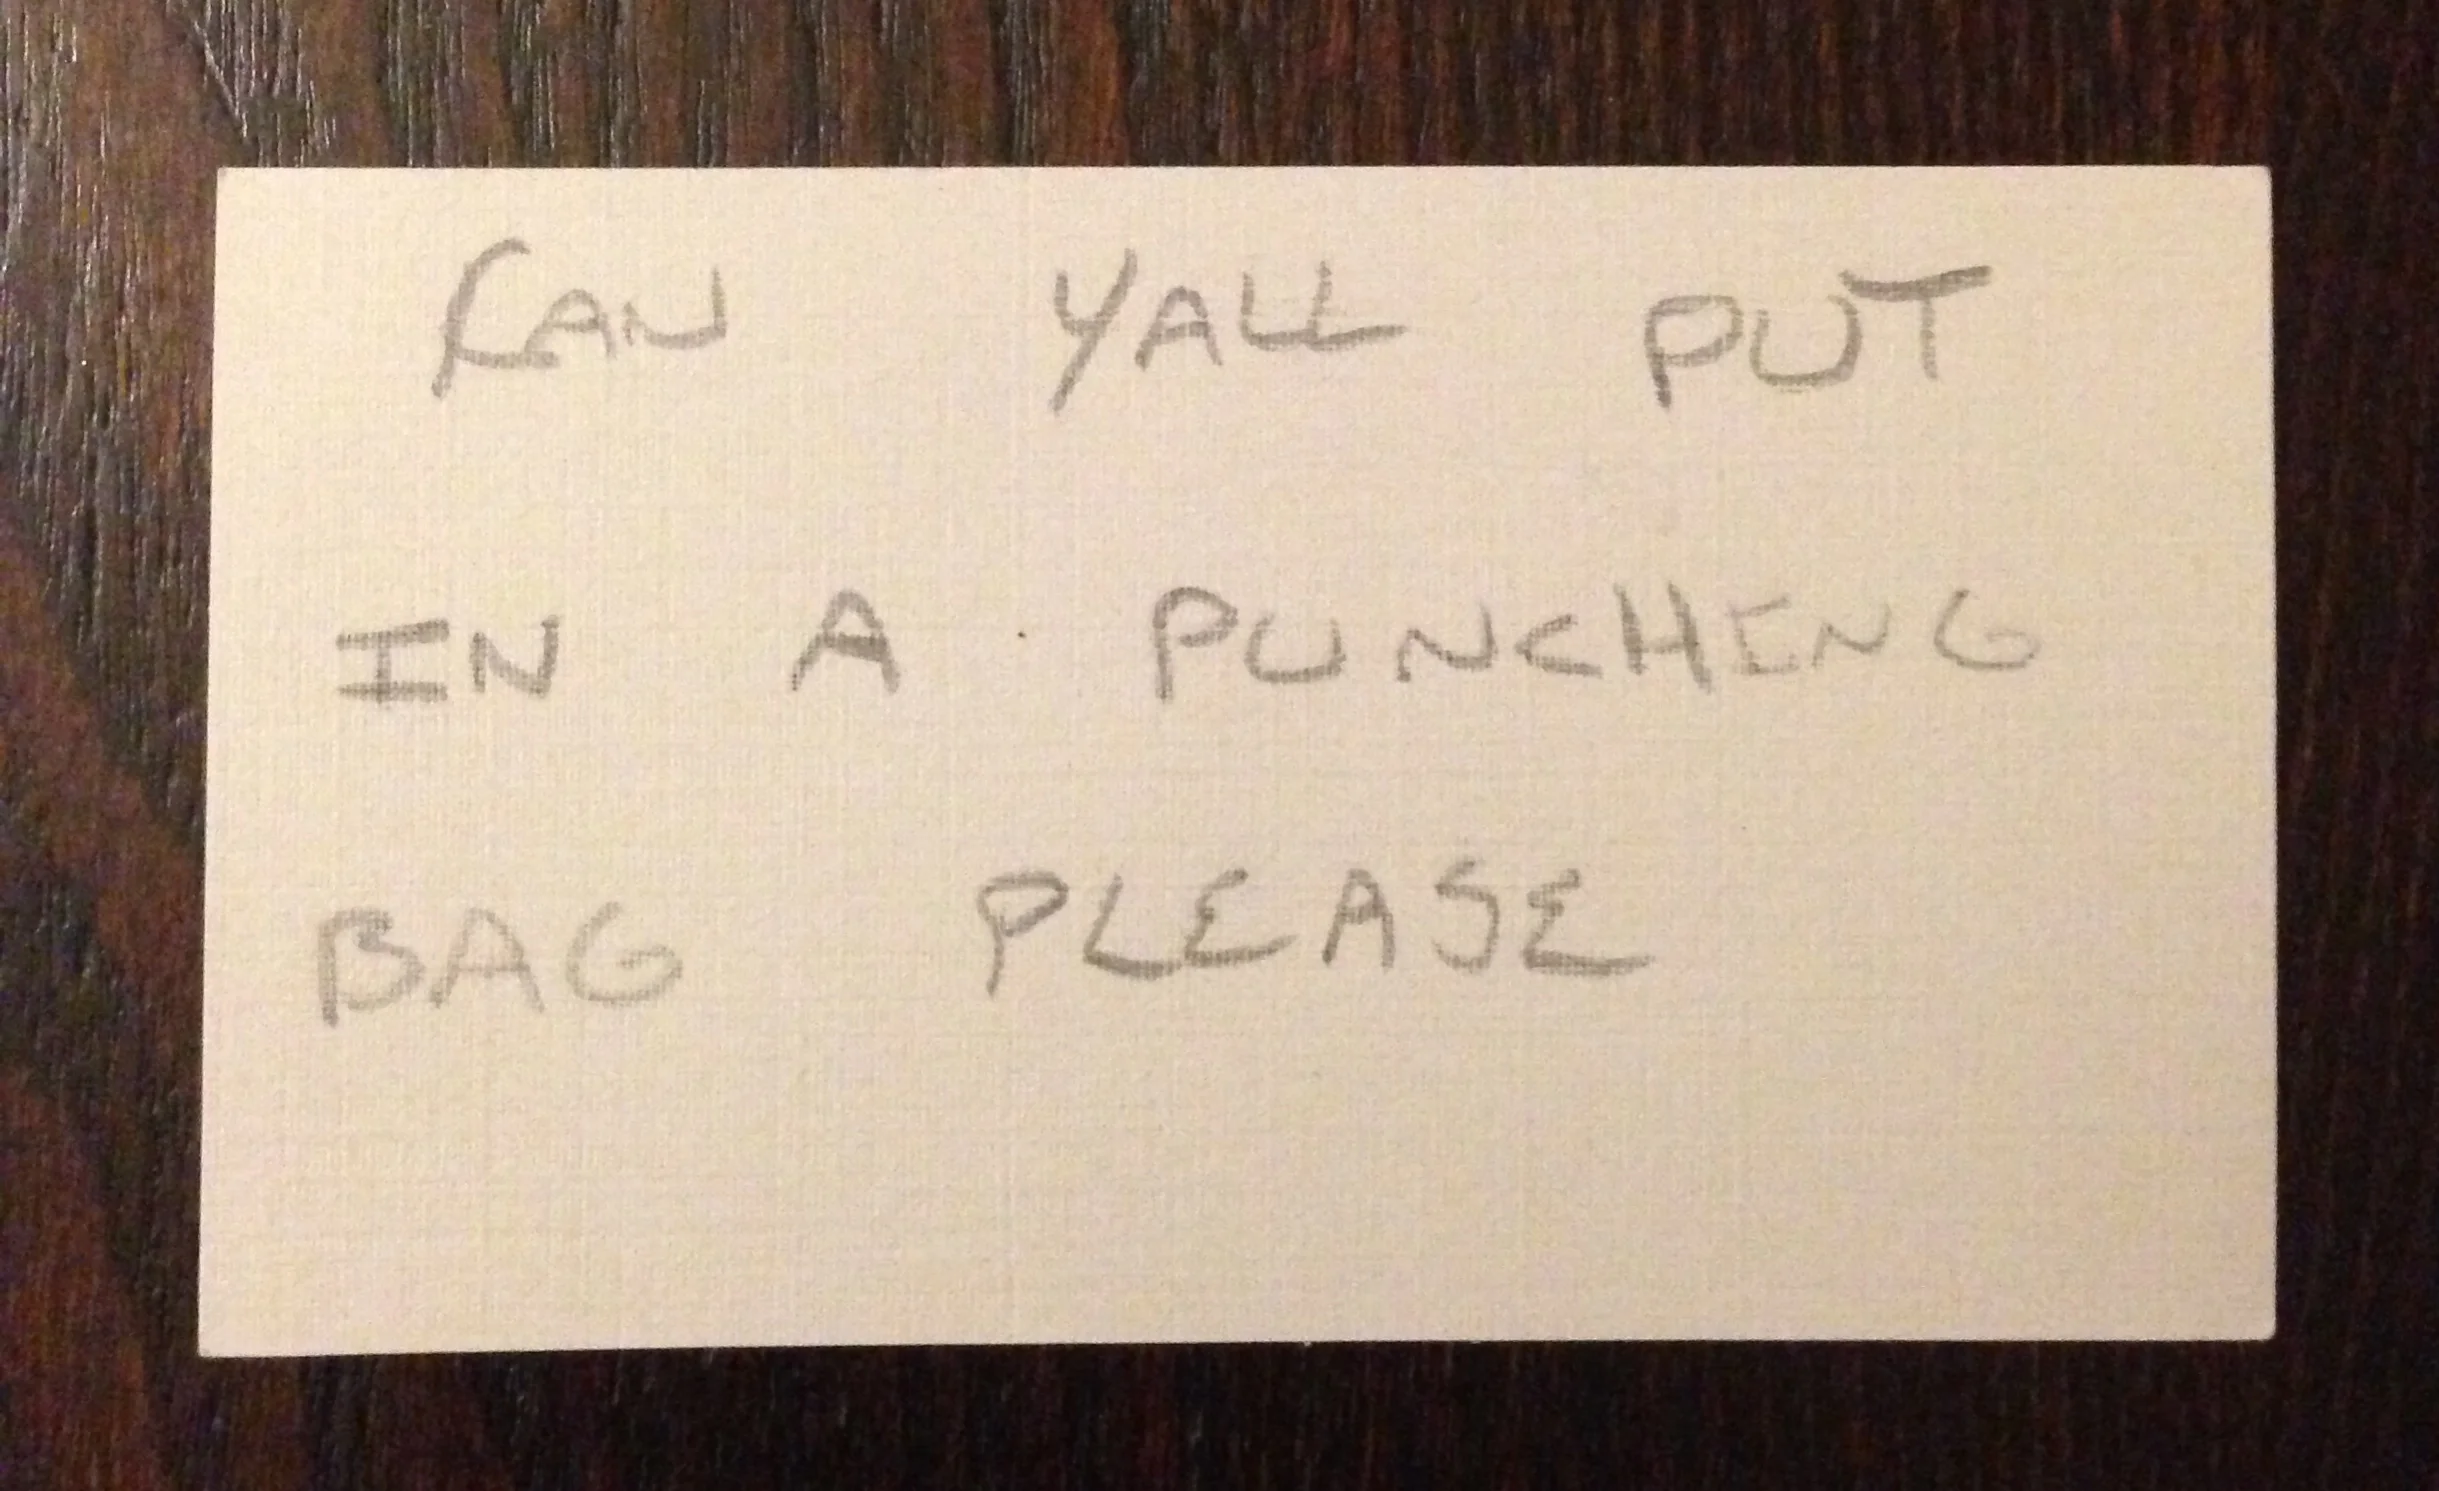 CAN YALL PUT
IN A PUNCHING
BAG PLEASE